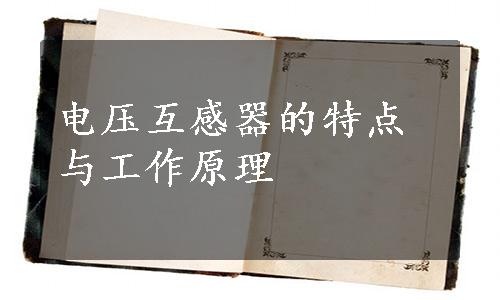 电压互感器的特点
与工作原理